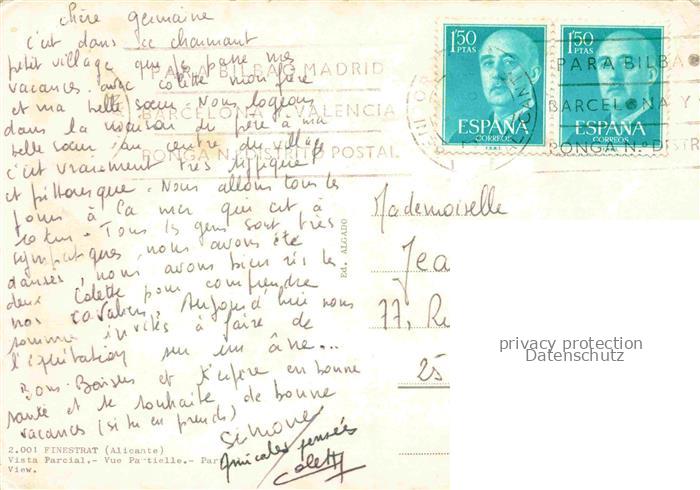 chère germaine
c'est dans ce charmant
petit village que je passe mes
vacances avec colette mon frère
et ma belle sœur. Nous logeons
dans la maison du père à ma
belle sœur au centre du village
c'est vraiment très typique
et pittoresque. Nous allons tous les
jours à la mer qui est à
10 km. Tous les gens sont très
sympatiques, nous avons été
danser, nous avons bien ris les
deux Colette pour comprendre
nos cavaliers. Aujourd'hui nous
somme invités à faire de
l'équitation sur un âne...
Bons Baisers et t'espère en bonne
santé et te souhaite de bonne
vacances (si tu en prends)
Simone
Amicales pensées
Colette
2.001 FINESTRAT (Alicante)
Vista Parcial.- Vue Partielle.- Par
View.
Ed. ALGADO
1'50
PTAS
ESPAÑA
CORREOS
1'50
PTAS
ESPAÑA
CORREOS
PARA BILBAO MADRID
BARCELONA Y VALENCIA
PONGA N.º DISTRITO POSTAL
ALICANTE
PARA BILBAO
BARCELONA Y
PONGA N.º DISTR
Mademoiselle
Jea
77, R
25
privacy protection
Datenschutz